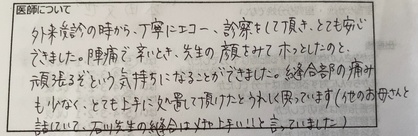 医師について
外来受診の時から、丁寧にエコー、診察をして頂き、とても安心
できました。陣痛で辛いとき、先生の顔をみてホッとしたのと、
頑張るぞという気持ちになることができました。縫合部の痛み
も少なく、とても上手に処置して頂けたとうれしく思っています(他のお母さんと
話していて、石川先生の縫合は上手!!と言っていました)